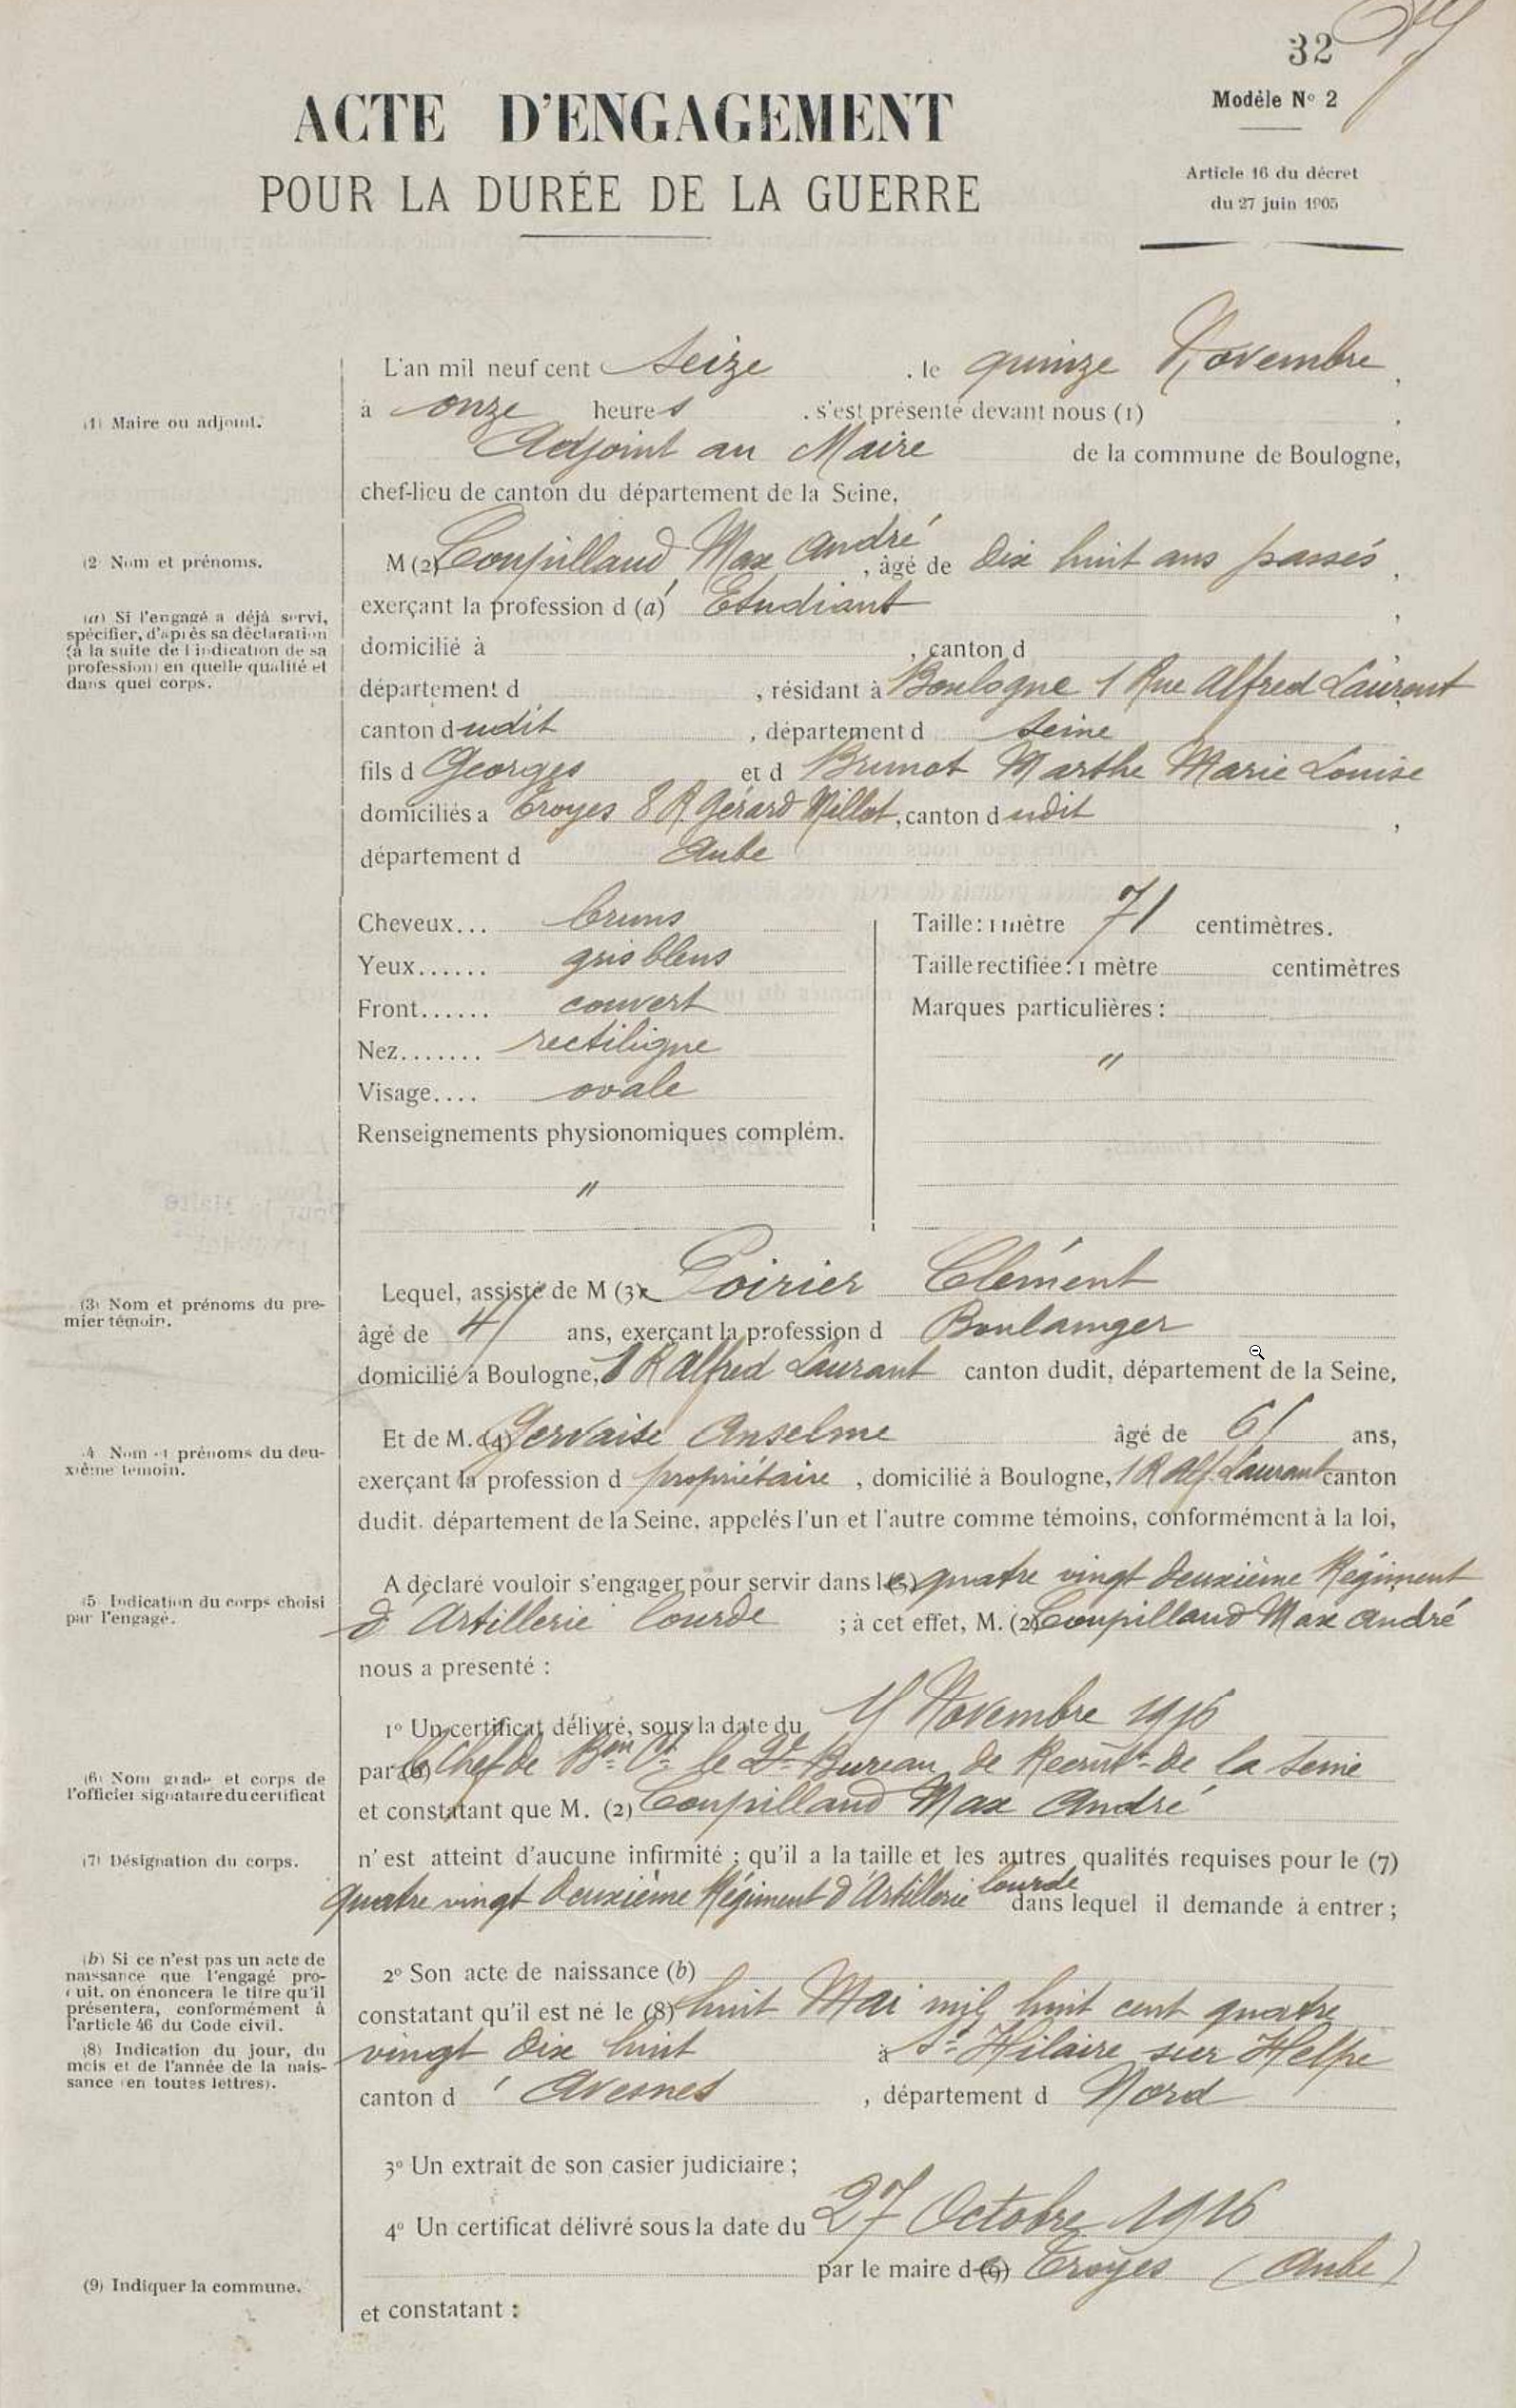 32
Modèle No 2
ACTE D'ENGAGEMENT
POUR LA DURÉE DE LA GUERRE
Article 16 du décret
du 27 juin 1905
L'an mil neuf cent seize . le quinze Novembre ,
à onze heures . s'est présenté devant nous (1) .
(1) Maire ou adjoint.
Adjoint au Maire de la commune de Boulogne,
chef-lieu de canton du département de la Seine,
(2 Nom et prénoms.
M (2) Coupilland Max André , âgé de Dix huit ans passés ,
(a) Si l'engagé a déjà servi,
spécifier, d'après sa déclaration
(à la suite de l'indication de sa
profession) en quelle qualité et
dans quel corps.
exerçant la profession d (a) Etudiant ,
domicilié à , canton d
département d , résidant à Boulogne 1 Rue Alfred Laurent
canton dudit , département d Seine
fils d Georges et d Brumot Marthe Marie Louise
domiciliés a Troyes 8 R Gérard Millot, canton dudit ,
département d Aube
Cheveux... bruns
Yeux...... gris bleus
Front...... couvert
Nez....... rectiligne
Visage.... ovale
Renseignements physionomiques complém.
"
Taille: 1 mètre 71 centimètres.
Taille rectifiée: 1 mètre centimètres
Marques particulières :
"
(3) Nom et prénoms du pre-
mier témoin.
Lequel, assisté de M (3) Poirier Clément
âgé de 41 ans, exerçant la profession d Boulanger
domicilié à Boulogne, 1 R Alfred Laurant canton dudit, département de la Seine,
4 Nom et prénoms du deu-
xième témoin.
Et de M. (4) Gervaise Anselme âgé de 61 ans,
exerçant la profession d propriétaire , domicilié à Boulogne, 1 R Alf. Laurant canton
dudit. département de la Seine, appelés l'un et l'autre comme témoins, conformément à la loi,
(5 Indication du corps choisi
par l'engagé.
A déclaré vouloir s'engager pour servir dans le (5) quatre vingt deuxième Régiment
d'Artillerie lourde ; à cet effet, M. (2) Coupilland Max André
nous a presenté :
1o Un certificat délivré, sous la date du 15 Novembre 1916
(6) Nom grade et corps de
l'officier signataire du certificat
par (6) le Chef de Bon Ct le 2e Bureau de Recrutt de la Seine
et constatant que M. (2) Coupilland Max André
(7) Désignation du corps.
n'est atteint d'aucune infirmité ; qu'il a la taille et les autres qualités requises pour le (7)
quatre vingt deuxième Régiment d'Artillerie lourde dans lequel il demande à entrer ;
(b) Si ce n'est pas un acte de
naissance que l'engagé pro-
duit, on énoncera le titre qu'il
présentera, conformément à
l'article 46 du Code civil.
(8) Indication du jour, du
mois et de l'année de la nais-
sance (en toutes lettres).
2o Son acte de naissance (b)
constatant qu'il est né le (8) huit Mai mil huit cent quatre
vingt dix huit à St Hilaire sur Helpe
canton d'Avesnes , département d Nord
3o Un extrait de son casier judiciaire ;
4o Un certificat délivré sous la date du 27 Octobre 1916
(9) Indiquer la commune.
par le maire d (9) Troyes (Aube)
et constatant :